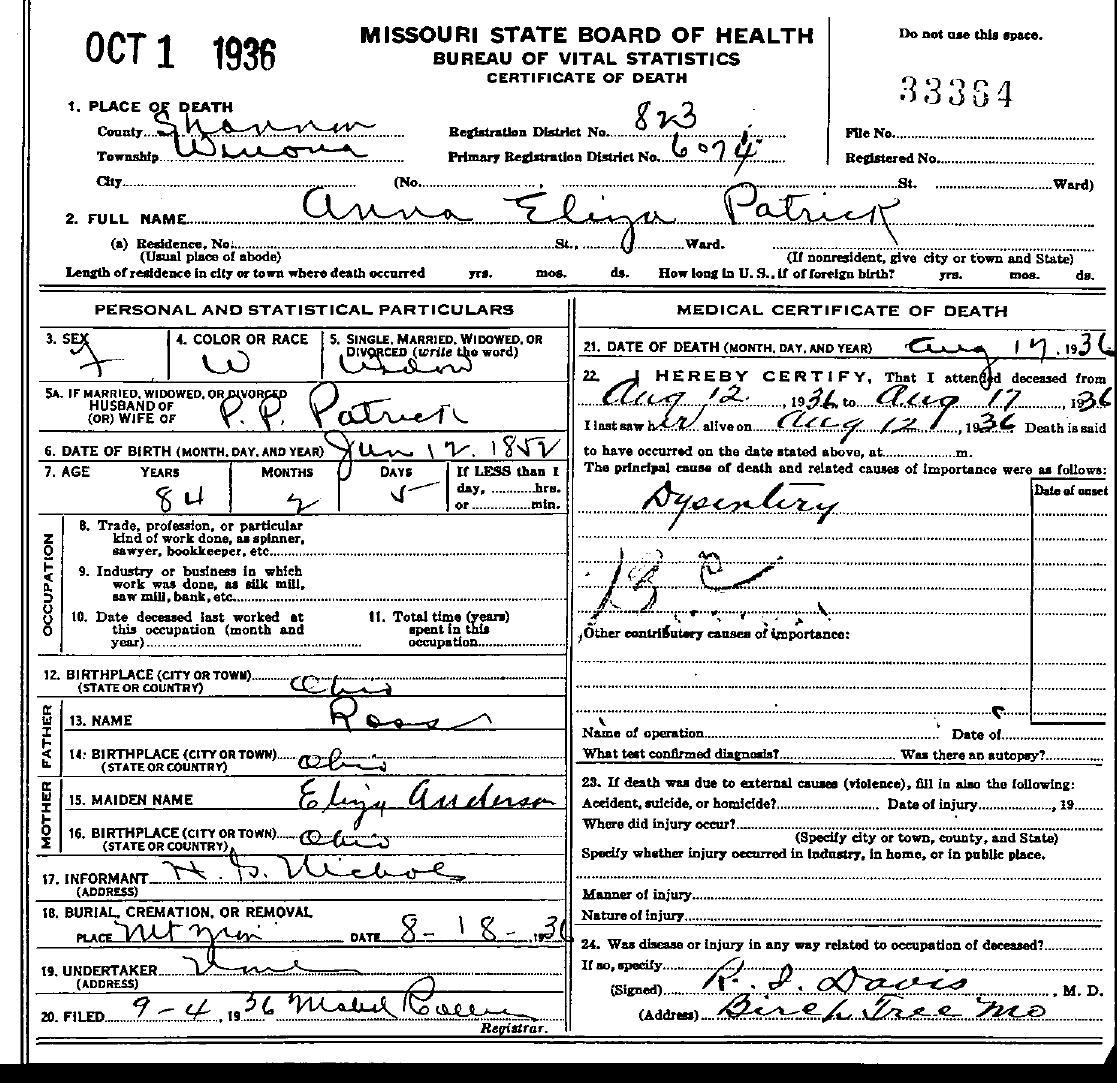 OCT 1 1936
MISSOURI STATE BOARD OF HEALTH
BUREAU OF VITAL STATISTICS
CERTIFICATE OF DEATH
Do not use this space.
33364
1. PLACE OF DEATH
County Shannon
Township Winona
City (No. St. Ward)
Registration District No. 823
Primary Registration District No. 6074
File No.
Registered No.
2. FULL NAME Anna Eliza Patrick
(a) Residence, No. St., Ward.
(Usual place of abode) (If nonresident, give city or town and State)
Length of residence in city or town where death occurred yrs. mos. ds. How long in U. S., if of foreign birth? yrs. mos. ds.
PERSONAL AND STATISTICAL PARTICULARS
3. SEX F
4. COLOR OR RACE W
5. SINGLE, MARRIED, WIDOWED, OR
DIVORCED (write the word) Widow
5A. IF MARRIED, WIDOWED, OR DIVORCED
HUSBAND OF
(OR) WIFE OF P. P. Patrick
6. DATE OF BIRTH (MONTH, DAY, AND YEAR) Jun 12. 1852
7. AGE YEARS MONTHS DAYS
84 2 5
If LESS than 1
day, hrs.
or min.
OCCUPATION
8. Trade, profession, or particular
kind of work done, as spinner,
sawyer, bookkeeper, etc.
9. Industry or business in which
work was done, as silk mill,
saw mill, bank, etc.
10. Date deceased last worked at
this occupation (month and
year)
11. Total time (years)
spent in this
occupation
12. BIRTHPLACE (CITY OR TOWN)
(STATE OR COUNTRY) Ohio
FATHER
13. NAME Roos
14. BIRTHPLACE (CITY OR TOWN)
(STATE OR COUNTRY) Ohio
MOTHER
15. MAIDEN NAME Eliza Anderson
16. BIRTHPLACE (CITY OR TOWN)
(STATE OR COUNTRY) Ohio
17. INFORMANT Nichols
(ADDRESS)
18. BURIAL, CREMATION, OR REMOVAL
PLACE Mt Zion DATE 8-18-, 1936
19. UNDERTAKER
(ADDRESS)
20. FILED 9-4, 1936 Mabel
Registrar.
MEDICAL CERTIFICATE OF DEATH
21. DATE OF DEATH (MONTH, DAY, AND YEAR) Aug 17, 1936
22. I HEREBY CERTIFY, That I attended deceased from
Aug 12, 1936 to Aug 17, 1936
I last saw her alive on Aug 12, 1936 Death is said
to have occurred on the date stated above, at m.
The principal cause of death and related causes of importance were as follows:
Date of onset
Dysentery
13 C
Other contributory causes of importance:
Name of operation Date of
What test confirmed diagnosis? Was there an autopsy?
23. If death was due to external causes (violence), fill in also the following:
Accident, suicide, or homicide? Date of injury , 19
Where did injury occur?
(Specify city or town, county, and State)
Specify whether injury occurred in industry, in home, or in public place.
Manner of injury
Nature of injury
24. Was disease or injury in any way related to occupation of deceased?
If so, specify
(Signed) R. I. Davis, M. D.
(Address) Birch Tree Mo